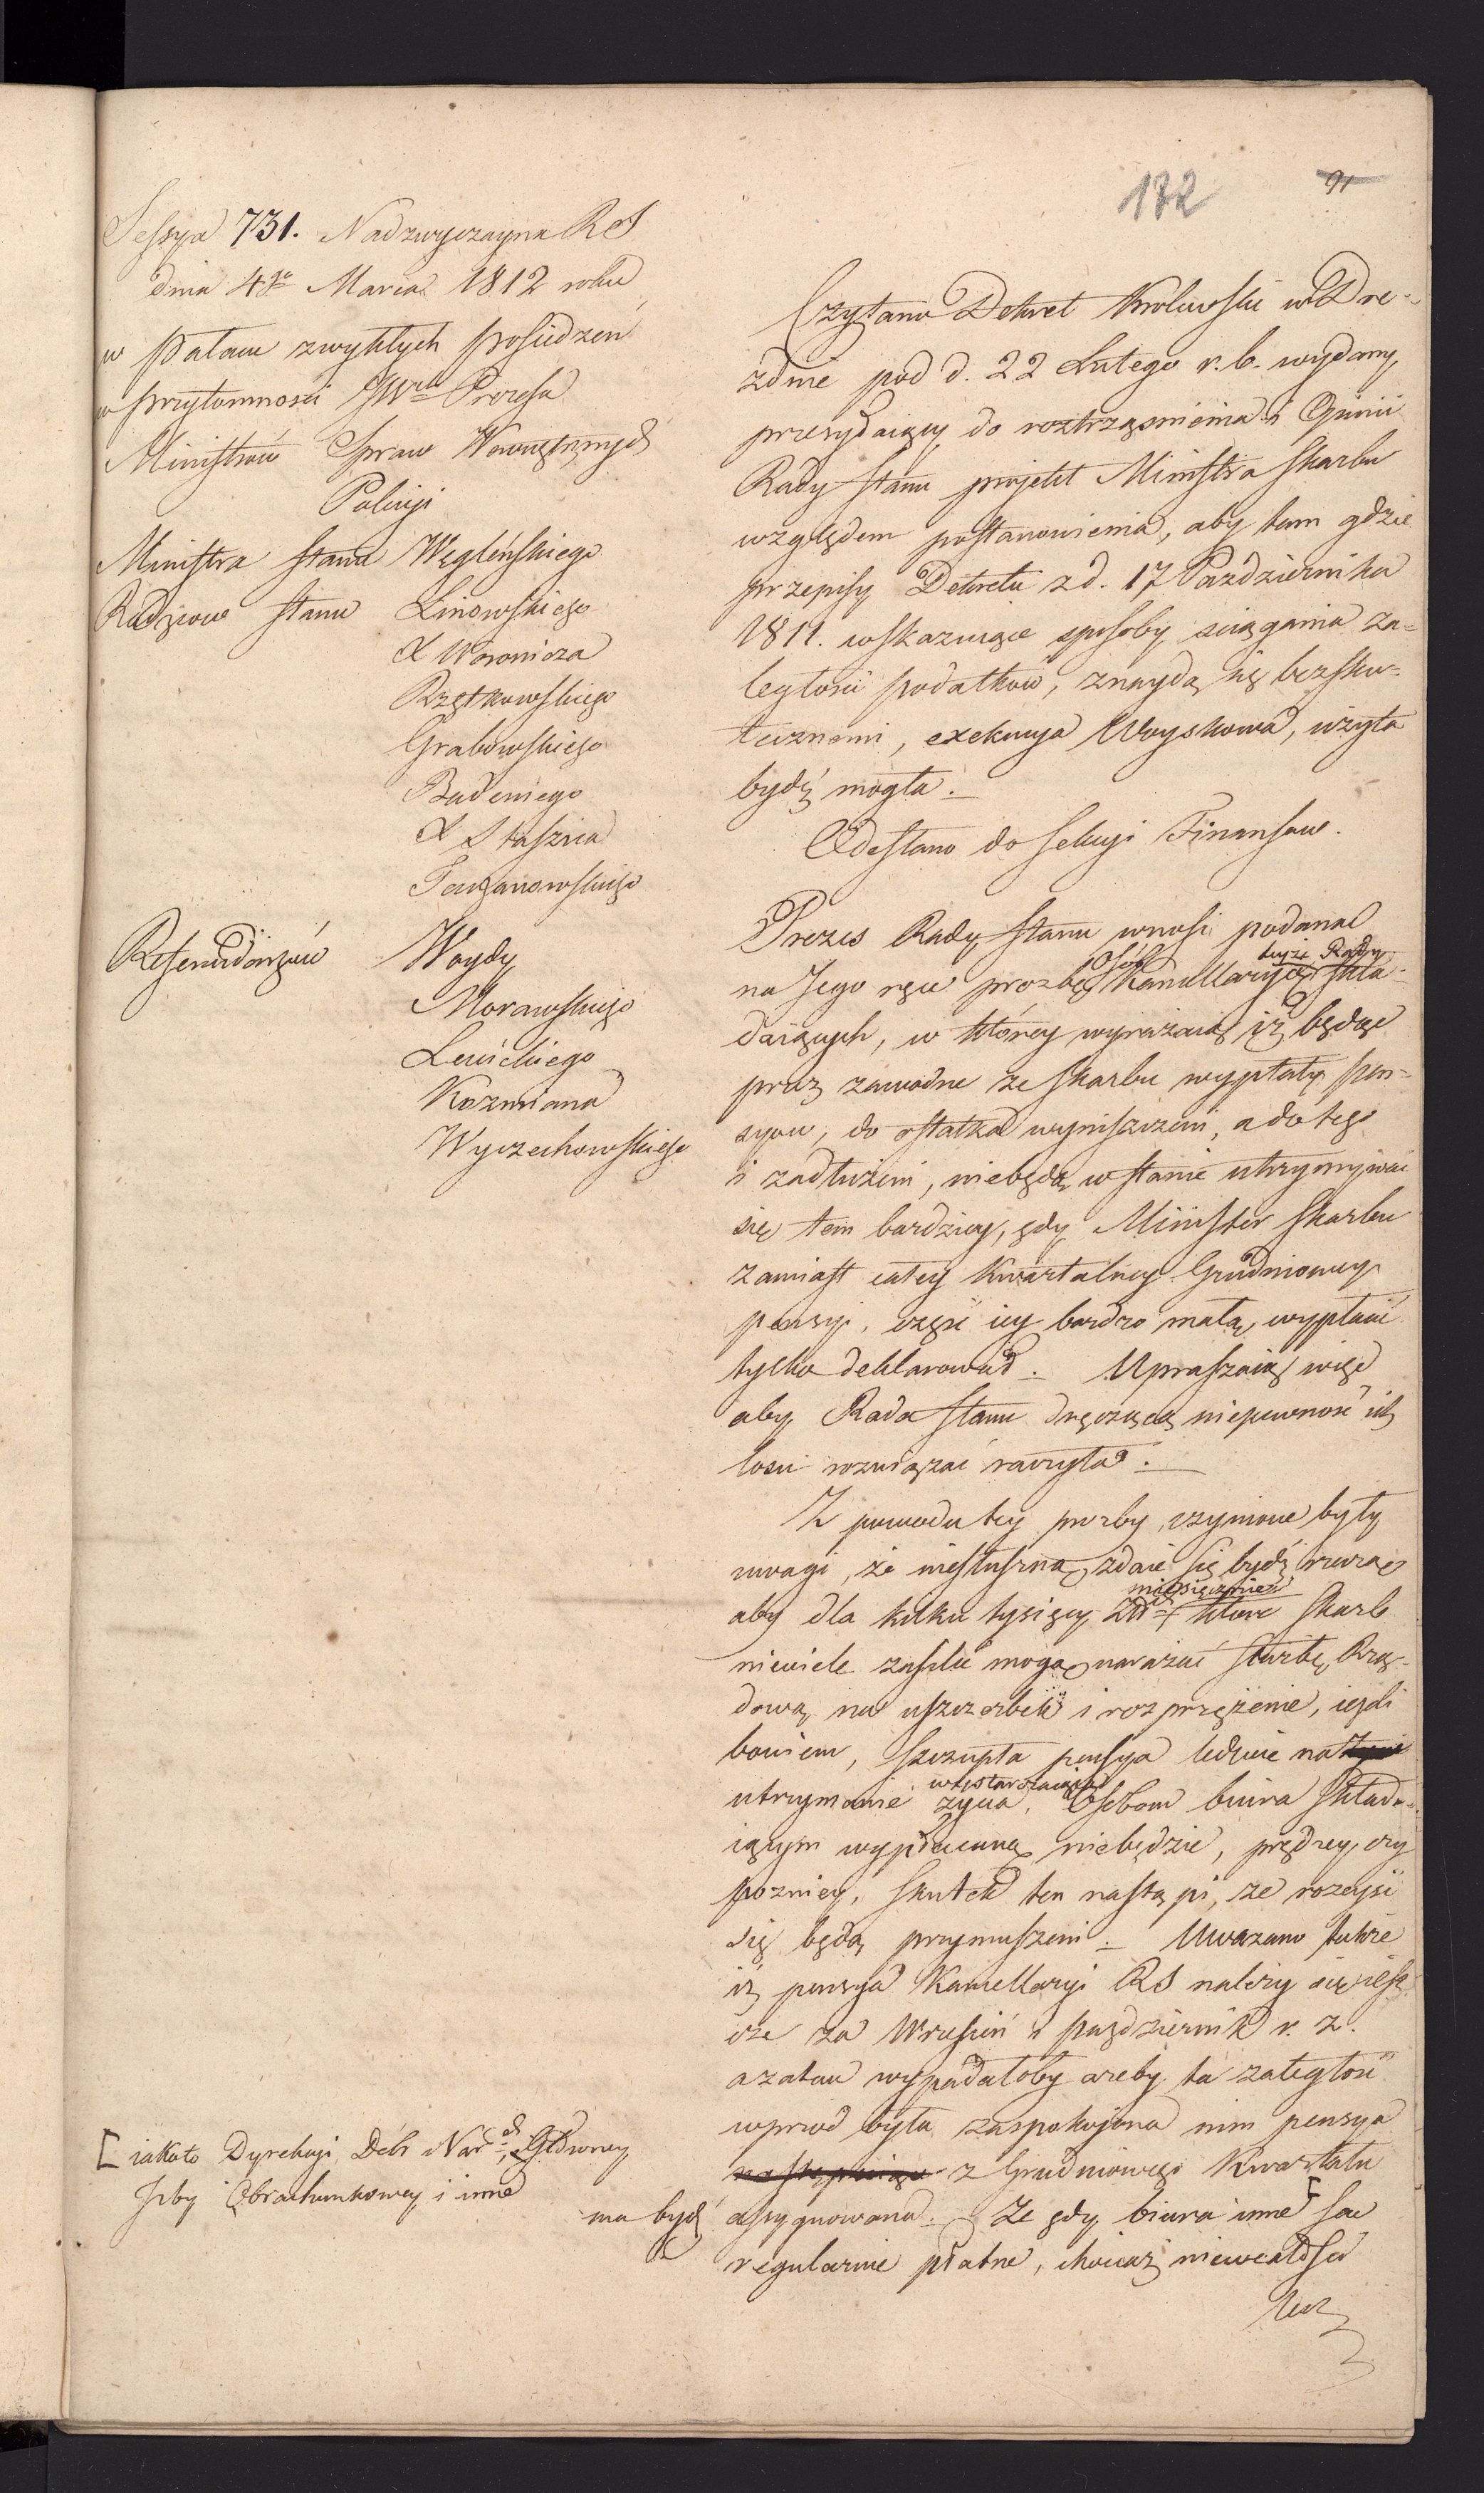 182
91
Sessya 731. Nadzwyczayna RS
dnia 4go Marca 1812 roku
w Pałacu zwykłych posiedzeń
w przytomności JWo Prezesa
Ministrów Spraw Wewnętrznych
Policyi
Ministra Stanu Węgleńskiego
Radzców Stanu Linowskiego
X Woronicza
Rzętkowskiego
Grabowskiego
Badeniego
X Staszica
Referendarzów Woydy
Morawskiego
Lewickiego
Kozmiana
Wyczechowskiego
Czytano Dekret Krolewski w Dre-
znie pod d. 22 Lutego r. b. wydany,
przesyłaiący do roztrząśnienia i Opinii
Rady Stanu projekt Ministra Skarbu
względem postanowienia, aby tam gdzie
przepisy Dekretu z d. 17 Pazdziernika
1811. wskazuiące sposoby sciągania za=
ległości podatków, znaydą się bezsku=
tecznemi, exekucya Woyskowa, użyta
bydź mogła.
Odesłano do Sekcyi Finansow.
Prezes Rady Stanu wnosi podaną
na Jego ręce prozbę Osób Kancellaryą teyże Rady skła-
daiących, w którey wyrażaią iż będąc
przez zawodne ze Skarbu wypłaty pen-
syow, do ostatka wyniszczeni, a do tego
i zadłużeni, niebędą w stanie utrzymywać
się tem bardziey, gdy Minister Skarbu
zamiast całey Kwartalney Grudniowey
pensyi, część iey bardzo małą, wypłacić
tylko deklarował. Upraszaią więc
aby Rada Stanu dręczącą niepewność ich
losu rozwiązać raczyła.
Z powodu tey prozby, czynione były
uwagi, że niesłuszną zdaie się bydź rzeczą
aby dla kilku tysięcy Złł miesięcznie które Skarb
niewiele zasilić mogą narażać służbę Rzą-
dową na uszczerbek i rozprzężenie, ieżli
bowiem, szczupła pensya ledwie na
utrzymanie życia wystarczaiąca, Osobom biura składa-
iącym wypłaconą niebędzie, prędzey, czy
pozniey, skutek ten nastąpi, że rozeyść
się będą przymuszeni. Uważano także
iż pensya Kancellaryi RS należy się iesz
cze za Wrzesień i pazdziernik r. z.
a zatem wypadałoby ażeby ta zaległość
wprzod była zaspokojona nim pensya
następuiąca z Grudniowego Kwartału
ma bydź assygnowana. Ze gdy biura inne [ są
regularnie płatne, chociaż niewcałości
lecz
[ iakoto Dyrekcyi Dóbr Nar: Głowney
Izby Obrachunkowey i inne